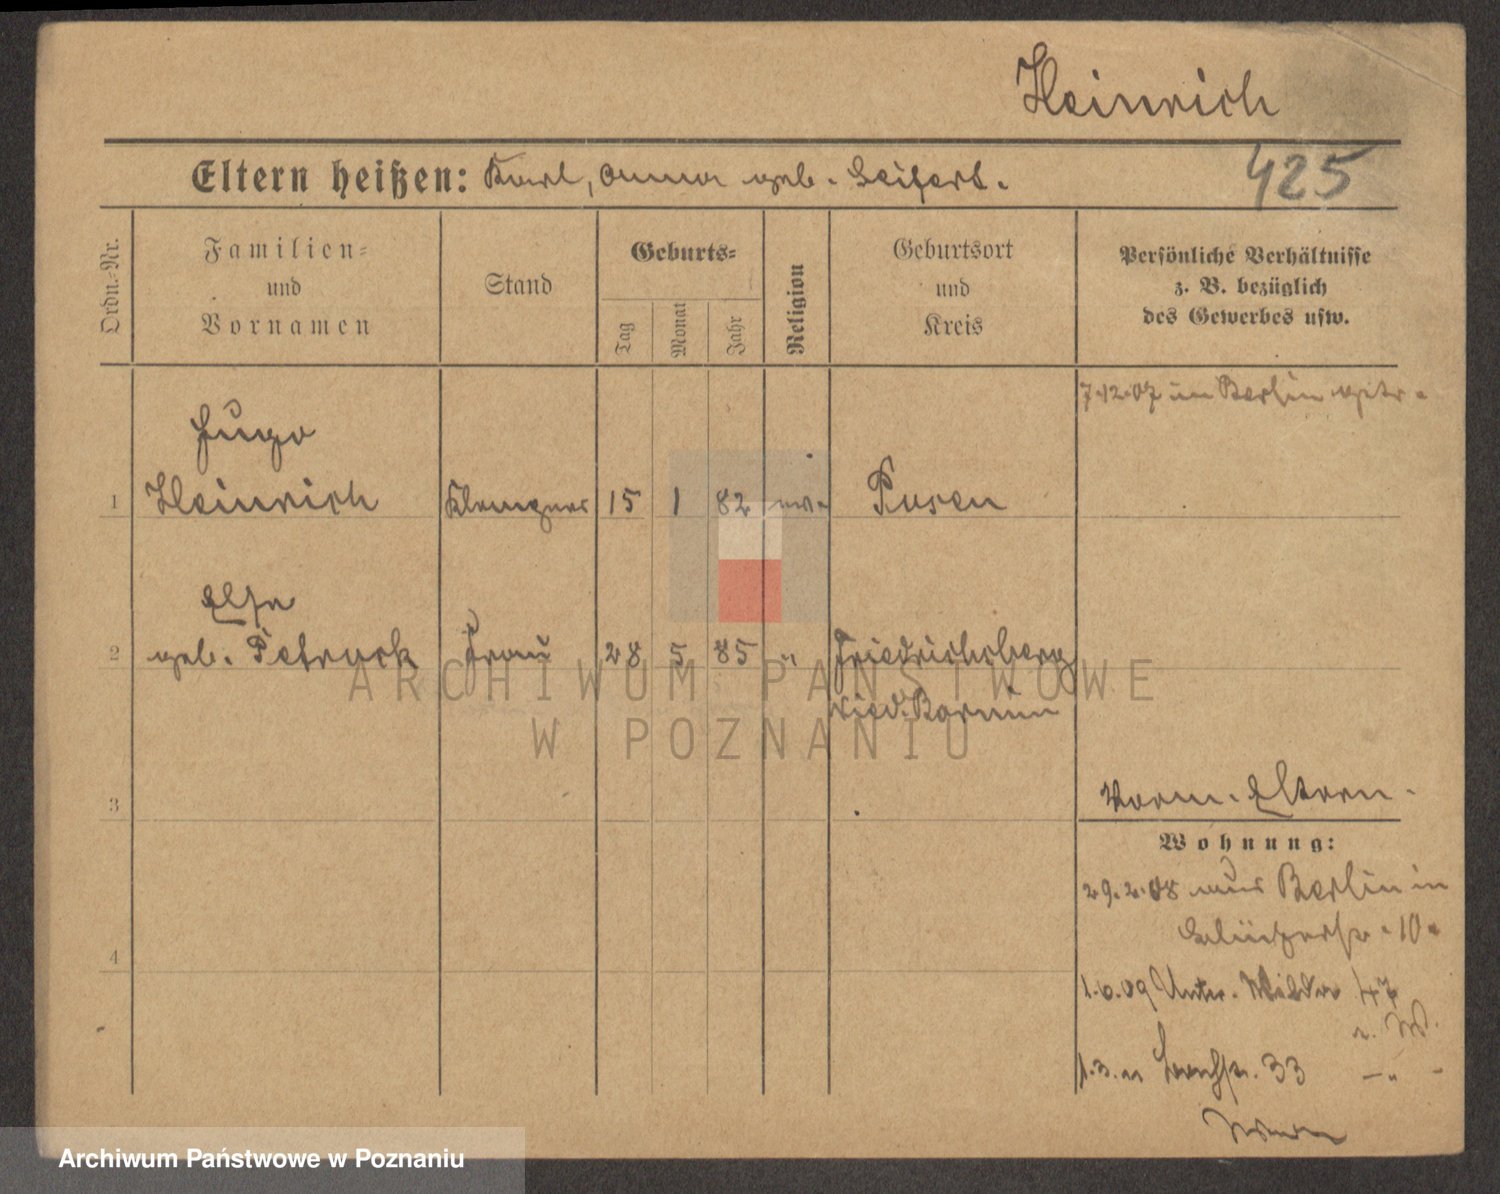 Heinrich
Eltern heißen: Karl, Anna geb. Seifert.
425
Ordn.-Nr.
Familien-
und
Vornamen
Stand
Geburts-
Tag
Monat
Jahr
Religion
Geburtsort
und
Kreis
Persönliche Verhältnisse
z. B. bezüglich
des Gewerbes usw.
7.12.07 in Berlin getr.
Hugo
1 Heinrich Klempner 15 1 82 ev. Posen
Else
2 geb. Petruck Frau 28 5 85 " Friedrichsberg
Nied. Barnim
3
Vorm. Eltern.
Wohnung:
29.2.08 aus Berlin in
10.
4
1.6.09 Unter. Wilda 47
b. W.
1.3.11 33 -"-
ARCHIWUM PAŃSTWOWE
W POZNANIU
Archiwum Państwowe w Poznaniu